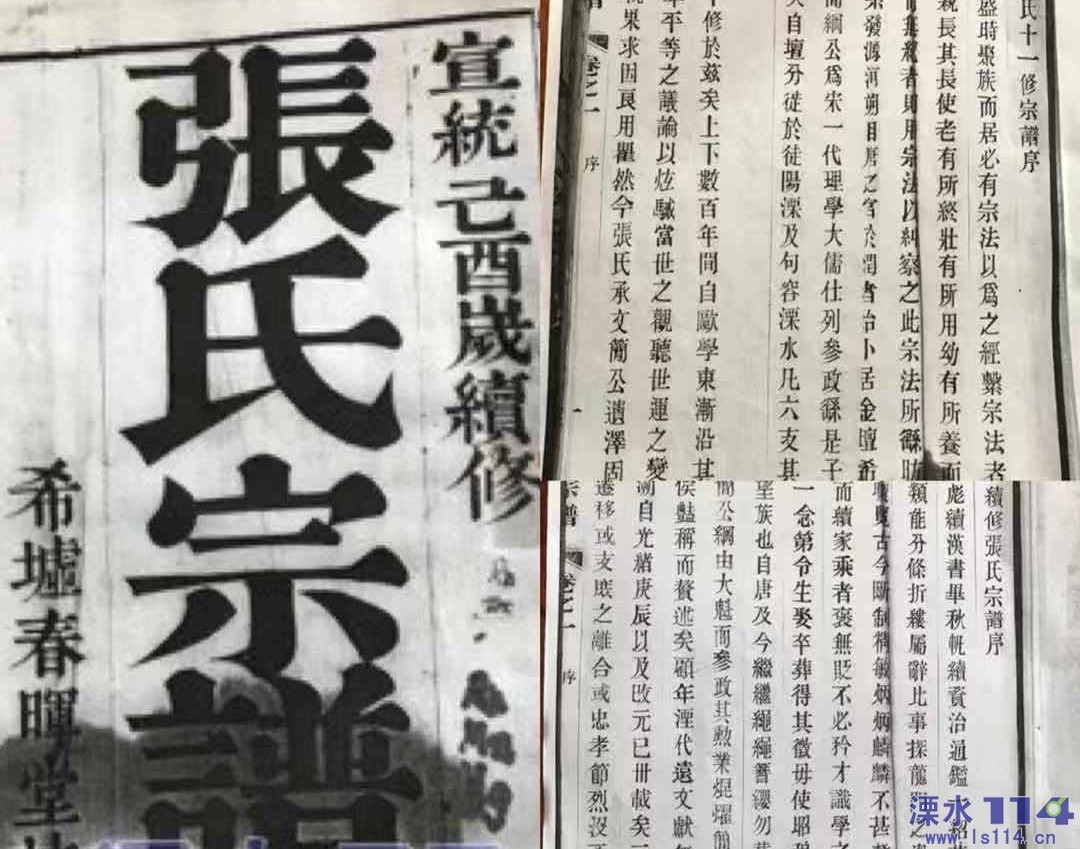 宣統己酉歲續修
張氏宗譜
希墟春暉堂
氏十一修宗譜序
盛時聚族而居必有宗法以爲之經繫宗法者
親長其長使老有所終壯有所用幼有所養而
者則用宗法以糾察之此宗法所繇
發源河朔自唐之官於潤者始卜居金壇希
而綱公爲宋一代理學大儒仕列參政繇是子
自壇分徙於徒陽溧及句容溧水凡六支其
十修於茲矣上下數百年間自歐學東漸沿其
年平等之議論以炫駴當世之觀聽世運之變
果求因良用瞿然今張氏承文簡公遺澤固
卷之一
序
續修張氏宗譜序
彪續漢書畢秋帆續資治通鑑
類能分條折縷屬辭比事探龍
覽古今斷制精敏炳炳麟麟不甚
而續家乘者褒無貶不必矜才識學之
一念第令生娶卒葬得其徵毋使昭穆
望族也自唐及今繼繼繩繩簪纓勿
簡公綱由大魁而參政其勲業焜燿
侯豔稱而贅述矣顧年湮代遠文獻
溯自光緒庚辰以及改元已卅載矣
遷移或支𣲖之離合或忠孝節烈沒
宗譜
卷之一
序
溧水114
www.ls114.cn